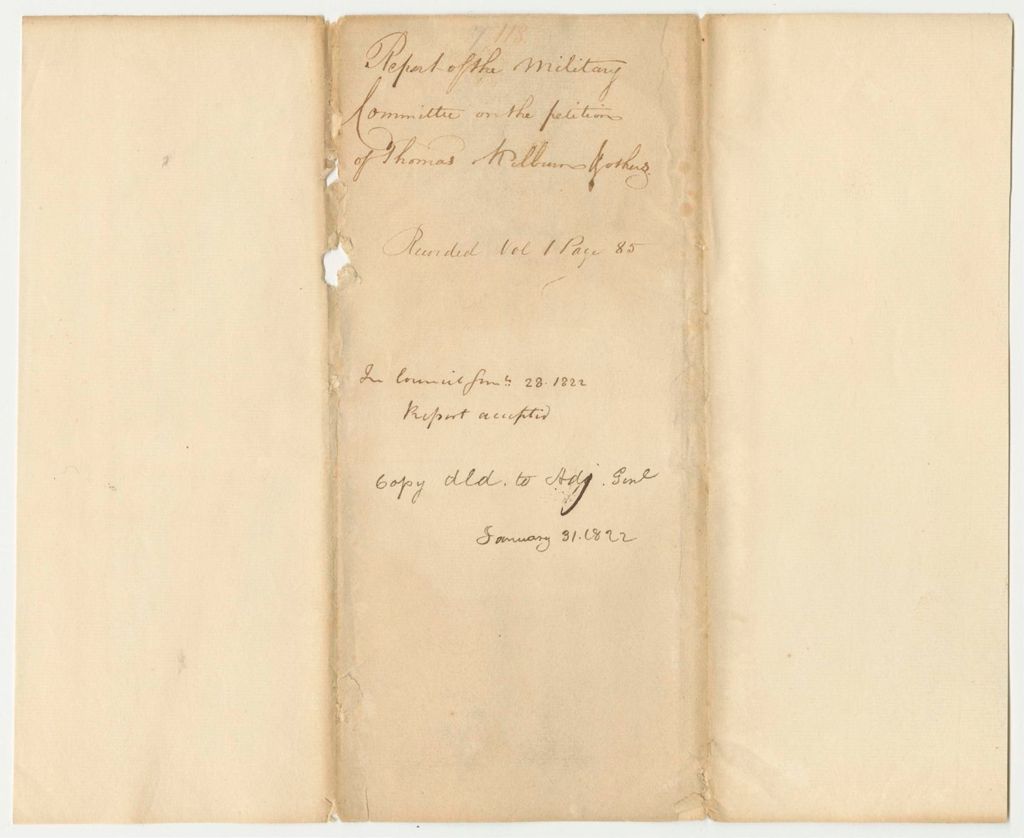 118
Report of the Military
Committee on the petition
of Thomas Milburn & others
Recorded Vol 1 Page 85
In Council Jany 28. 1822
Report accepted
Copy dld. to Adj. Genl
January 31. 1822